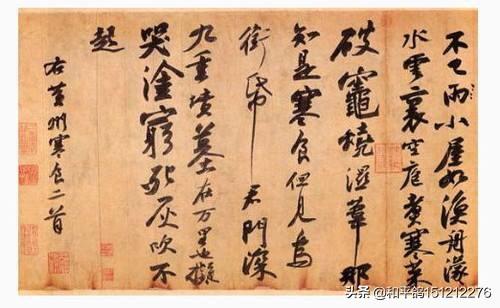 不已雨小屋如漁舟濛
水雲裏空庖煮寒菜
破竈燒濕葦那
知是寒食但見烏
銜帋君門深
九重墳墓在万里也擬
哭塗窮死灰吹不
起
右黄州寒食二首
头条 @和平鸽151212276